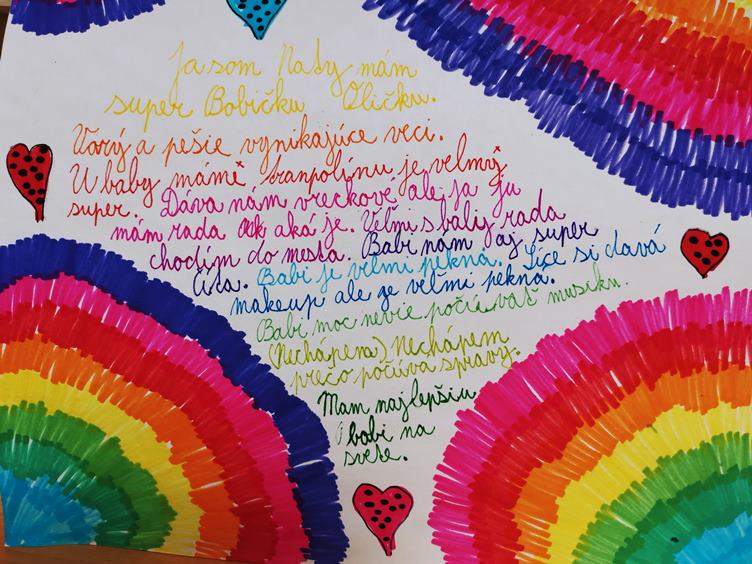 Ja som Naty mám
super Bobičku Oličku.
Varý a pešie vynikajúce veci.
U baby máme tranpolínu je veľmy
super. Dáva nám vreckové ale ja ju
mám rada ak aká je. Veľmi s baby rada
chodím do mesta. Babi nám aj super
číta. Babi je veľmi pekná. Síce si dává
makeup ale je veľmi pekná.
Babi moc nevie počúvať musiku.
(Nechápem) Nechápem
prečo počúva spravy.
Mam najlepšiu
babi na
svete.